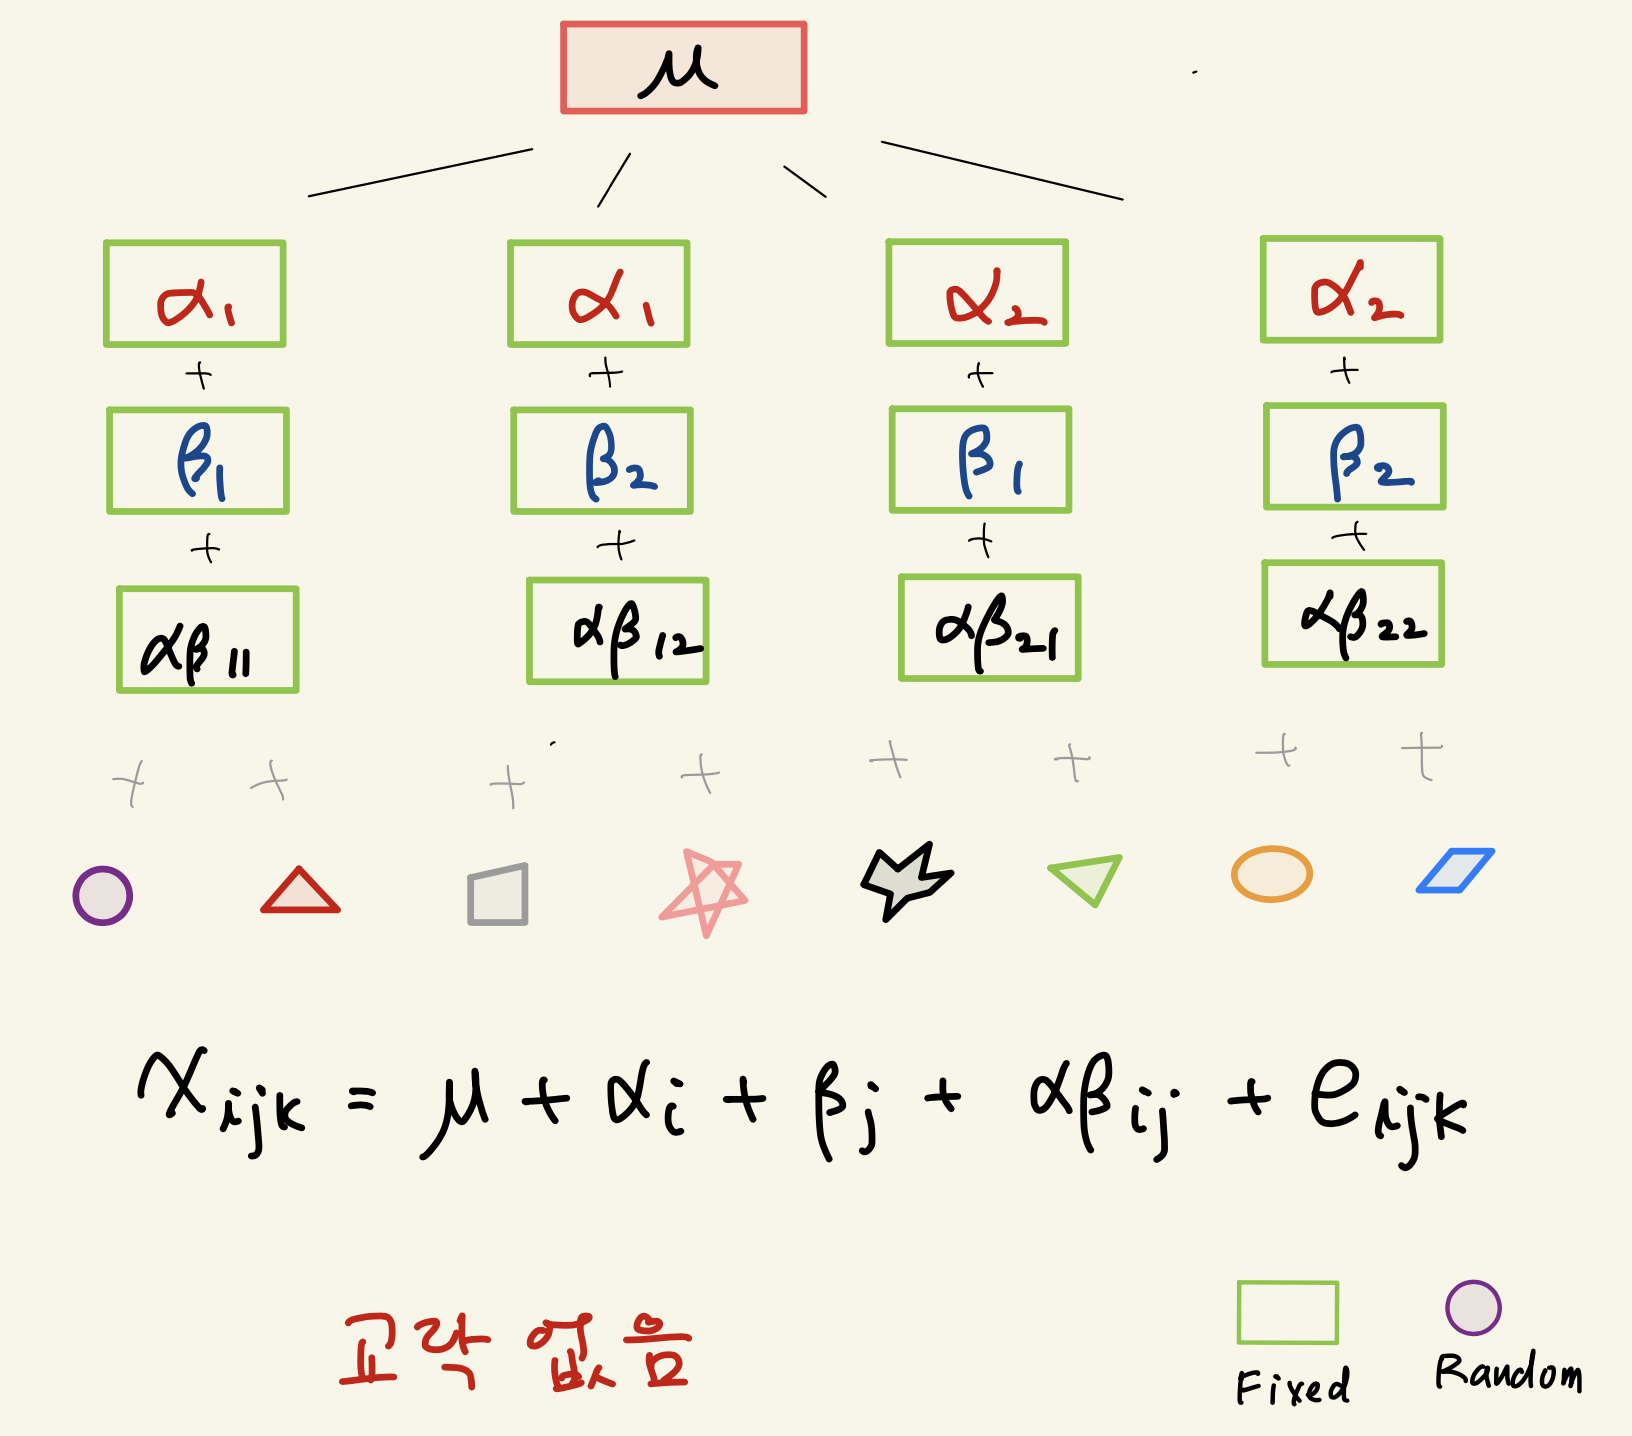 μ
α₁ α₁ α₂ α₂
+ + + +
β₁ β₂ β₁ β₂
+ + + +
αβ₁₁ αβ₁₂ αβ₂₁ αβ₂₂
+ + + + + + + +
xᵢⱼₖ = μ + αᵢ + βⱼ + αβᵢⱼ + eᵢⱼₖ
교락 없음
Fixed Random